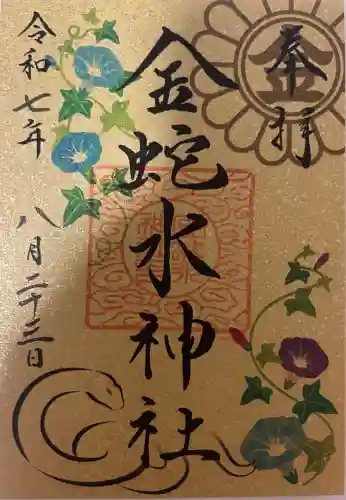 奉拝
金蛇水神社
令和七年 八月二十三日